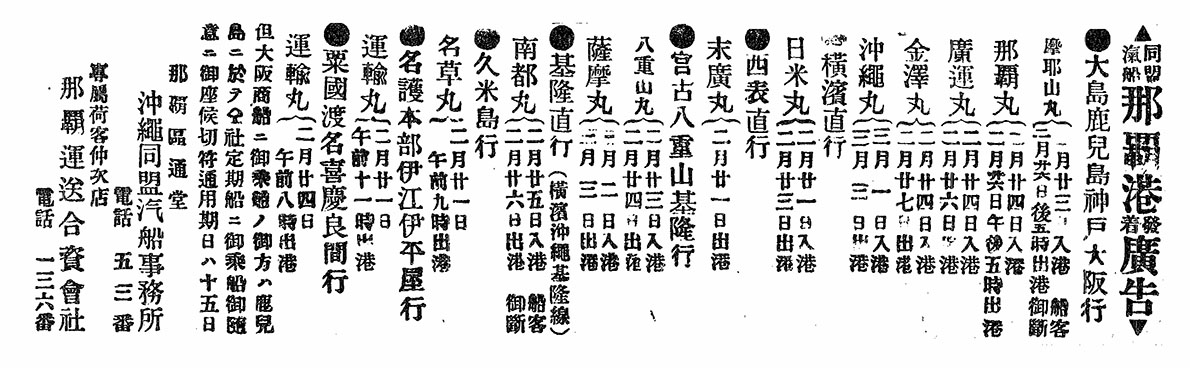 ▲同盟汽船那覇港發着廣告▼
●大島鹿兒島神戸大阪行
摩耶山丸 月廿三 入港 船客
二月廿六日後五時出港御斷
那覇丸 二月廿四日入港
二月廿六日午後五時出港
廣運丸 二月廿四日入港
二月廿六日出港
金澤丸 二月廿四日入港
二月廿七日出港
沖繩丸 三月一日入港
三月三日出港
●橫濱直行
日米丸 二月廿一日入港
二月廿三日出港
●西表直行
末廣丸 二月廿一日出港
●宮古八重山基隆行
八重山丸 二月廿三日入港
二月廿四日出港
薩摩丸 月一日入港
三月三日出港
●基隆直行(橫濱沖繩基隆線)
南都丸 二月廿五日入港 船客
二月廿六日出港 御斷
●久米島行
名草丸 二月廿一日
午前九時出港
●名護本部伊江伊平屋行
運輸丸 二月廿一日
午前十一時出港
●粟國渡名喜慶良間行
運輸丸 二月廿四日
午前八時出港
但大阪商船ニ御乘艦ノ御方ハ鹿兒
島ニ於テ仝社定期船ニ御乘船御隨
意ニ御座候切符通用期日ハ十五日
那覇區通堂
沖繩同盟汽船事務所
電話 五三番
專屬荷客仲次店
那覇運送合資會社
電話 一三六番